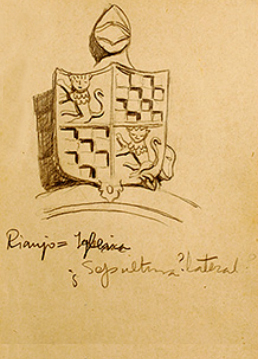 Rianjo = Iglesia
¿Sepultura? lateral?